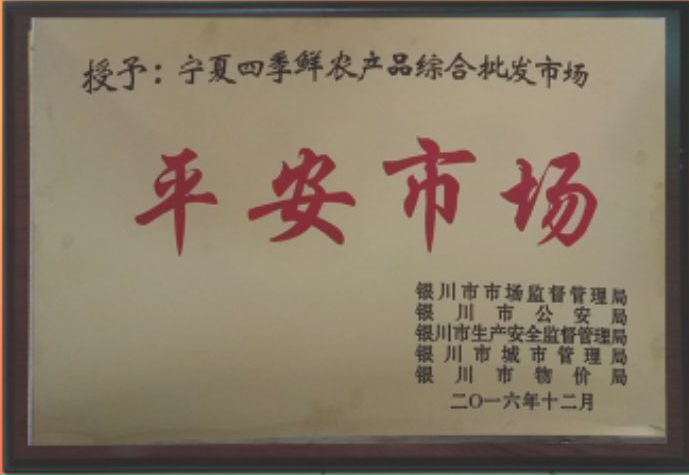 授予：宁夏四季鲜农产品综合批发市场
平安市场
银川市市场监督管理局
银川市公安局
银川市生产安全监督管理局
银川市城市管理局
银川市物价局
二〇一六年十二月